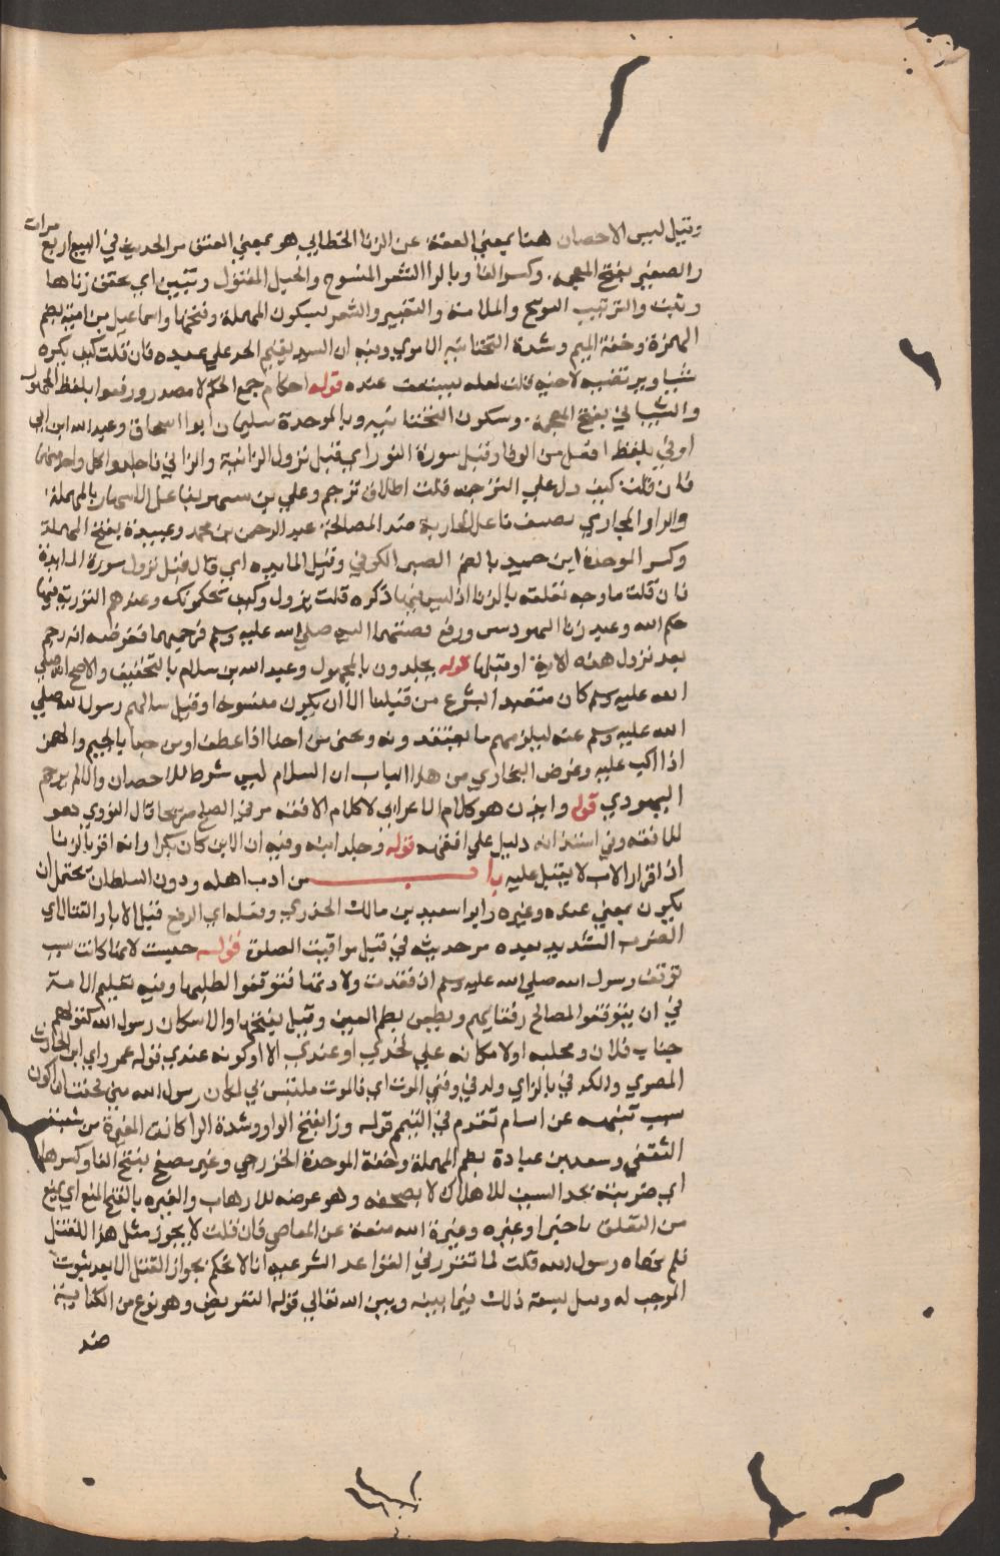 وقيل ليس الاحصان هنا بمعني العفة عن الزنا الخطابي هو بمعني العتق مر الحديث في البيع اربع مرات
والصغير بفتح المعجمة وكسر الفا وبالرا الشعر المنسوج والحبل المفتول وتبين اي تحقق زناها
وثبت والتثريب التوبيخ والملامة والتعيير والشعر بسكون المهملة وفتحها واسماعيل بن امية بضم
الهمزة وخفة الميم وشدة التحتانية الاموي وفيه ان السيد يقيم الحد علي عبده فان قلت كيف يكره
شيا ويرتضيه لاخيه قلت لعله يستعف عنده قوله احكام جمع الحكم لا مصدر ورفعوا بلفظ المجهول
والشيباني بفتح المعجمة وسكون التحتانية وبالموحدة سليمان ابو اسحاق وعبد الله ابن ابي
اوفي بلفظ افعل من الوفا وقبل سورة النور اي قبل نزول الزانية والزاني فاجلدوا كل واحد منهما
فان قلت كيف دل علي الترجمة قلت اطلاق ترجم وعلي بن مسهر بفاعل الاسهار بالمهملة
والرا والمحاربي بصيغة فاعل المحاربة ضد المصالحة عبد الرحمن بن محمد وعبيدة بفتح المهملة
وكسر الموحدة ابن حميد بالضم الضبي الكوفي وقيل المايدة اي قال قبل نزول سورة المايدة
فان قلت ما وجه تعلقه بالزنا اذ ليس فيها ذكره قلت نزول وكيف يحكمونك وعندهم التورية فيها
حكم الله وعيد زنا اليهودي ورفع قصتهما النبي صلي الله عليه وسلم فرجمهما فغرضه انه رجم
بعد نزول هذه الاية او قبلها قوله يجلدون بالمجهول وعبد الله بن سلام بالتخفيف والاصح انه صلي
الله عليه وسلم كان متعبدا بشرع من قبلنا الا ان يكون منسوخا وقيل سالهم رسول الله صلي
الله عليه وسلم عنه ليلزمهم ما يعتقدونه وعني من احنا اذا عطف او من جنا بالجيم والهمز
اذا اكب عليه وغرض البخاري من هذا الباب ان الاسلام ليس شرط للاحصان والا لم يرجم
اليهودي قوله وايذن هو كلام الاعرابي لا كلام الافقه مر في الصلح صريحا قال النووي هو
للافقه وفي استيذانه دليل علي افقهيته قوله وجلد ابنه وفيه ان الابن كان بكرا وانه اقر بالزنا
اذ اقرار الاب لا يقبل عليه باب من ادب اهله ودون السلطان يحتمل ان
يكون بمعني عنده وغيره وابو سعيد بن مالك الخدري وفعله اي الدفع قبل الاباء القتال اي
الضرب الشديد بعيده مر حديثه في قبيل مواقيت الصلوة قوله حبست لانها كانت سبب
توقف رسول الله صلي الله عليه وسلم اذ فقدت ولادتها فتوقفوا لطلبها وفيه تعليم الامة
في ان يتوقفوا لمصالح رفقايهم ويطعن بضم العين وقيل بفتحها والاسكان رسول الله كقولهم
جناب فلان ومجلسه اولا مكانه علي فخذي او عندي الا او كونه عندي قوله عمرو اي ابن الحارث
المصري ولكزني بالزاي ولدني وفني الموت اي فالموت ملتبس بي لمكان رسول الله مني فخفت انا اكون
سبب تنبهه عن اسام تقدم في التيمم قوله ورا بفتح الواو وشدة الرا كاتب المغيرة بن شعبة
الثقفي وسعد بن عبادة بضم المهملة وخفة الموحدة الخزرجي وغير مصفح بفتح الفا وكسرها
اي ضربته بحد السيف للاهلاك لا بصفحه وهو عرضه للارهاب والغيرة بالفتح المنع اي يمنع
من التعلق باجنبي او غيره وغيرة الله منعه عن المعاصي فان قلت لا يجوز مثل هذا القتل
فلم نهاه رسول الله قلت لما تقرر في القواعد الشرعية انا لا نحكم بجواز القتل الا بعد ثبوت
الموجب له وهل يسعه ذلك فيما بينه وبين الله تعالي قوله التعريض وهو نوع من الكناية
ضد